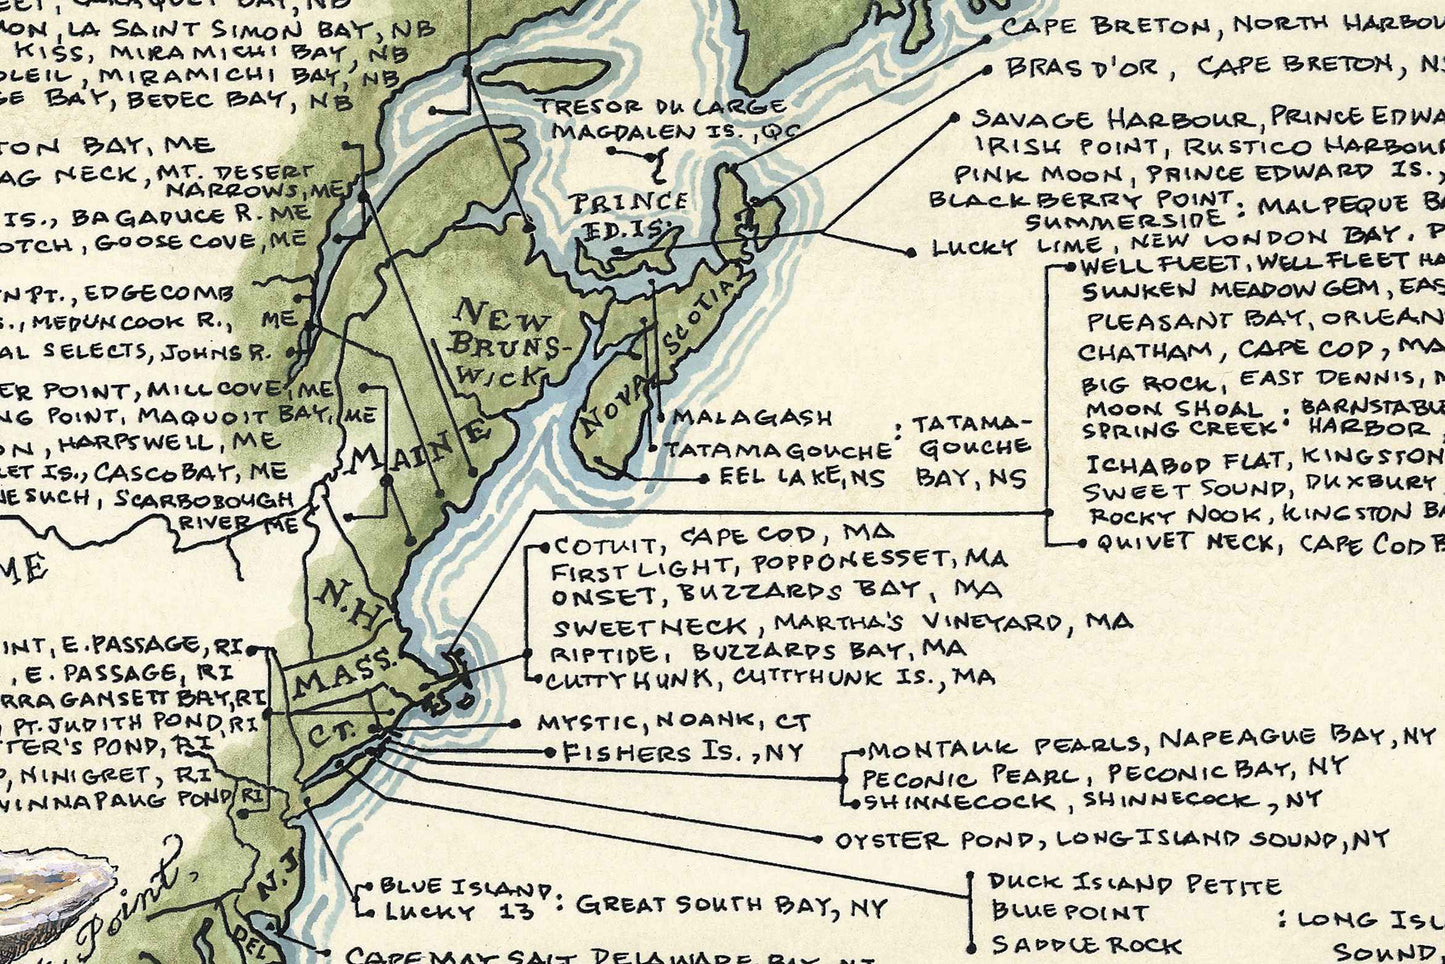 BAY, NB
MON, LA SAINT SIMON BAY, NB
KISS, MIRAMICHI BAY, NB
OLEIL, MIRAMICHI BAY, NB
GE BAY, BEDEC BAY, NB
TON BAY, ME
AG NECK, MT. DESERT
NARROWS, ME
IS., BAGADUCE R. ME
OTCH, GOOSE COVE, ME
N PT., EDGECOMB
S., MEDUNCOOK R., ME
AL SELECTS, JOHNS R.
ER POINT, MILL COVE, ME
NG POINT, MAQUOIT BAY, ME
ON, HARPSWELL, ME
LET IS., CASCO BAY, ME
NESUCH, SCARBOBOUGH
RIVER ME
ME
INT, E. PASSAGE, RI
, E. PASSAGE, RI
RRAGANSETT BAY, RI
, PT. JUDITH POND, RI
TTER'S POND, RI
, NINIGRET, RI
WINNAPAUG POND, RI
Point,
TRESOR DU LARGE
MAGDALEN IS., QC
PRINCE
ED. IS.
NEW
BRUNS-
WICK
NOVA SCOTIA
MAINE
N.H.
MASS.
CT.
N.J.
DEL
CAPE BRETON, NORTH HARBOU
BRAS D'OR, CAPE BRETON, NS
SAVAGE HARBOUR, PRINCE EDWA
IRISH POINT, RUSTICO HARBOU
PINK MOON, PRINCE EDWARD IS.,
BLACKBERRY POINT
SUMMERSIDE : MALPEQUE BA
LUCKY LIME, NEW LONDON BAY. P
WELLFLEET, WELLFLEET HA
SUNKEN MEADOW GEM, EAS
PLEASANT BAY, ORLEAN
CHATHAM, CAPE COD, MA
BIG ROCK, EAST DENNIS, M
MOON SHOAL : BARNSTABLE
SPRING CREEK HARBOR,
ICHABOD FLAT, KINGSTON
SWEET SOUND, DUXBURY
ROCKY NOOK, KINGSTON BA
QUIVET NECK, CAPE COD B
MALAGASH : TATAMA-
TATAMAGOUCHE GOUCHE
EEL LAKE, NS BAY, NS
COTUIT, CAPE COD, MA
FIRST LIGHT, POPPONESSET, MA
ONSET, BUZZARDS BAY, MA
SWEET NECK, MARTHA'S VINEYARD, MA
RIPTIDE, BUZZARDS BAY, MA
CUTTYHUNK, CUTTYHUNK IS., MA
MYSTIC, NOANK, CT
FISHERS IS., NY
MONTAUK PEARLS, NAPEAGUE BAY, NY
PECONIC PEARL, PECONIC BAY, NY
SHINNECOCK, SHINNECOCK, NY
OYSTER POND, LONG ISLAND SOUND, NY
DUCK ISLAND PETITE
BLUE POINT : LONG ISL
SADDLE ROCK SOUND,
BLUE ISLAND : GREAT SOUTH BAY, NY
LUCKY 13
CAPE MAY SALT DELAWARE BAY, NJ